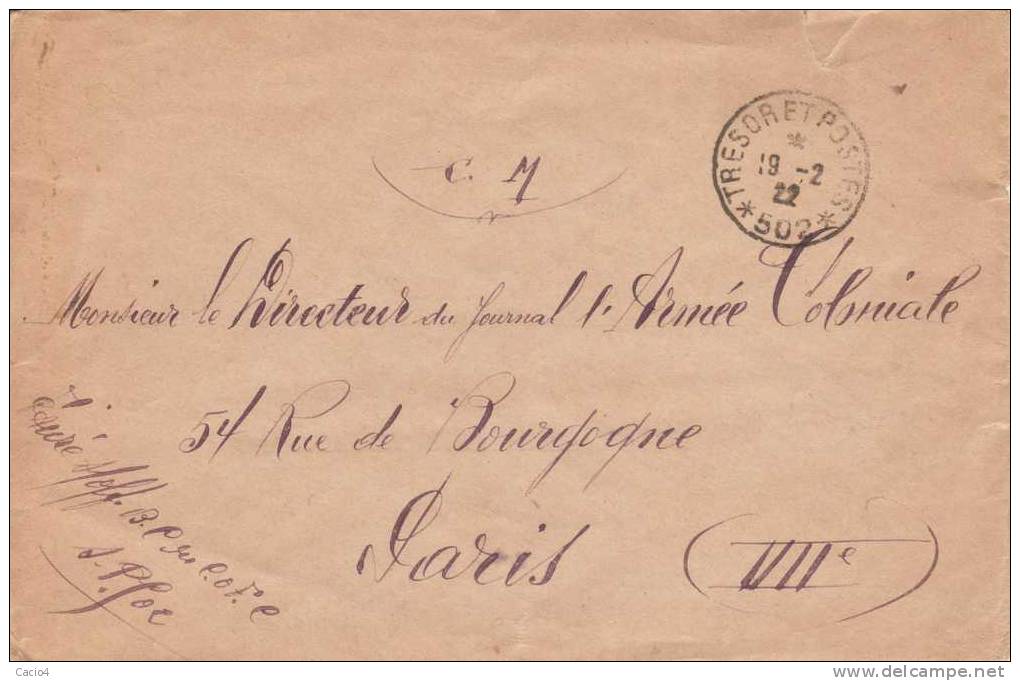 TRESOR ET POSTES
19 -2
22
* 502 *
C. M
Monsieur le Directeur du Journal l'Armée Coloniale
54 Rue de Bourgogne
Paris VIIe
Cacio4
http://www.delcampe.net